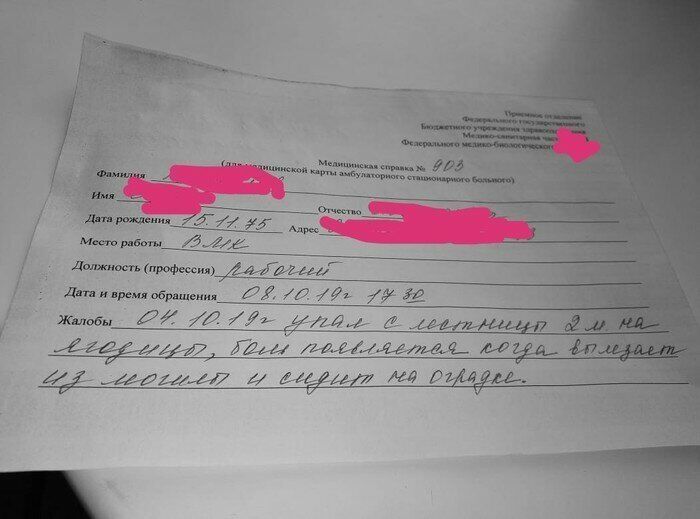 Приемное отделение
Федерального государственного
Бюджетного учреждения здравоохранения
Медико-санитарная
Федерального медико-биологического
Медицинская справка № 903
(для медицинской карты амбулаторного стационарного больного)
Фамилия
Имя Отчество
Дата рождения 15.11.75 Адрес
Место работы ВМК
Должность (профессия) рабочий
Дата и время обращения 08.10.19г 17 30
Жалобы 04.10.19г упал с лестницы 2 м. на
ягодицы, боли появляется когда вылезает
из могилы и сидит на оградке.